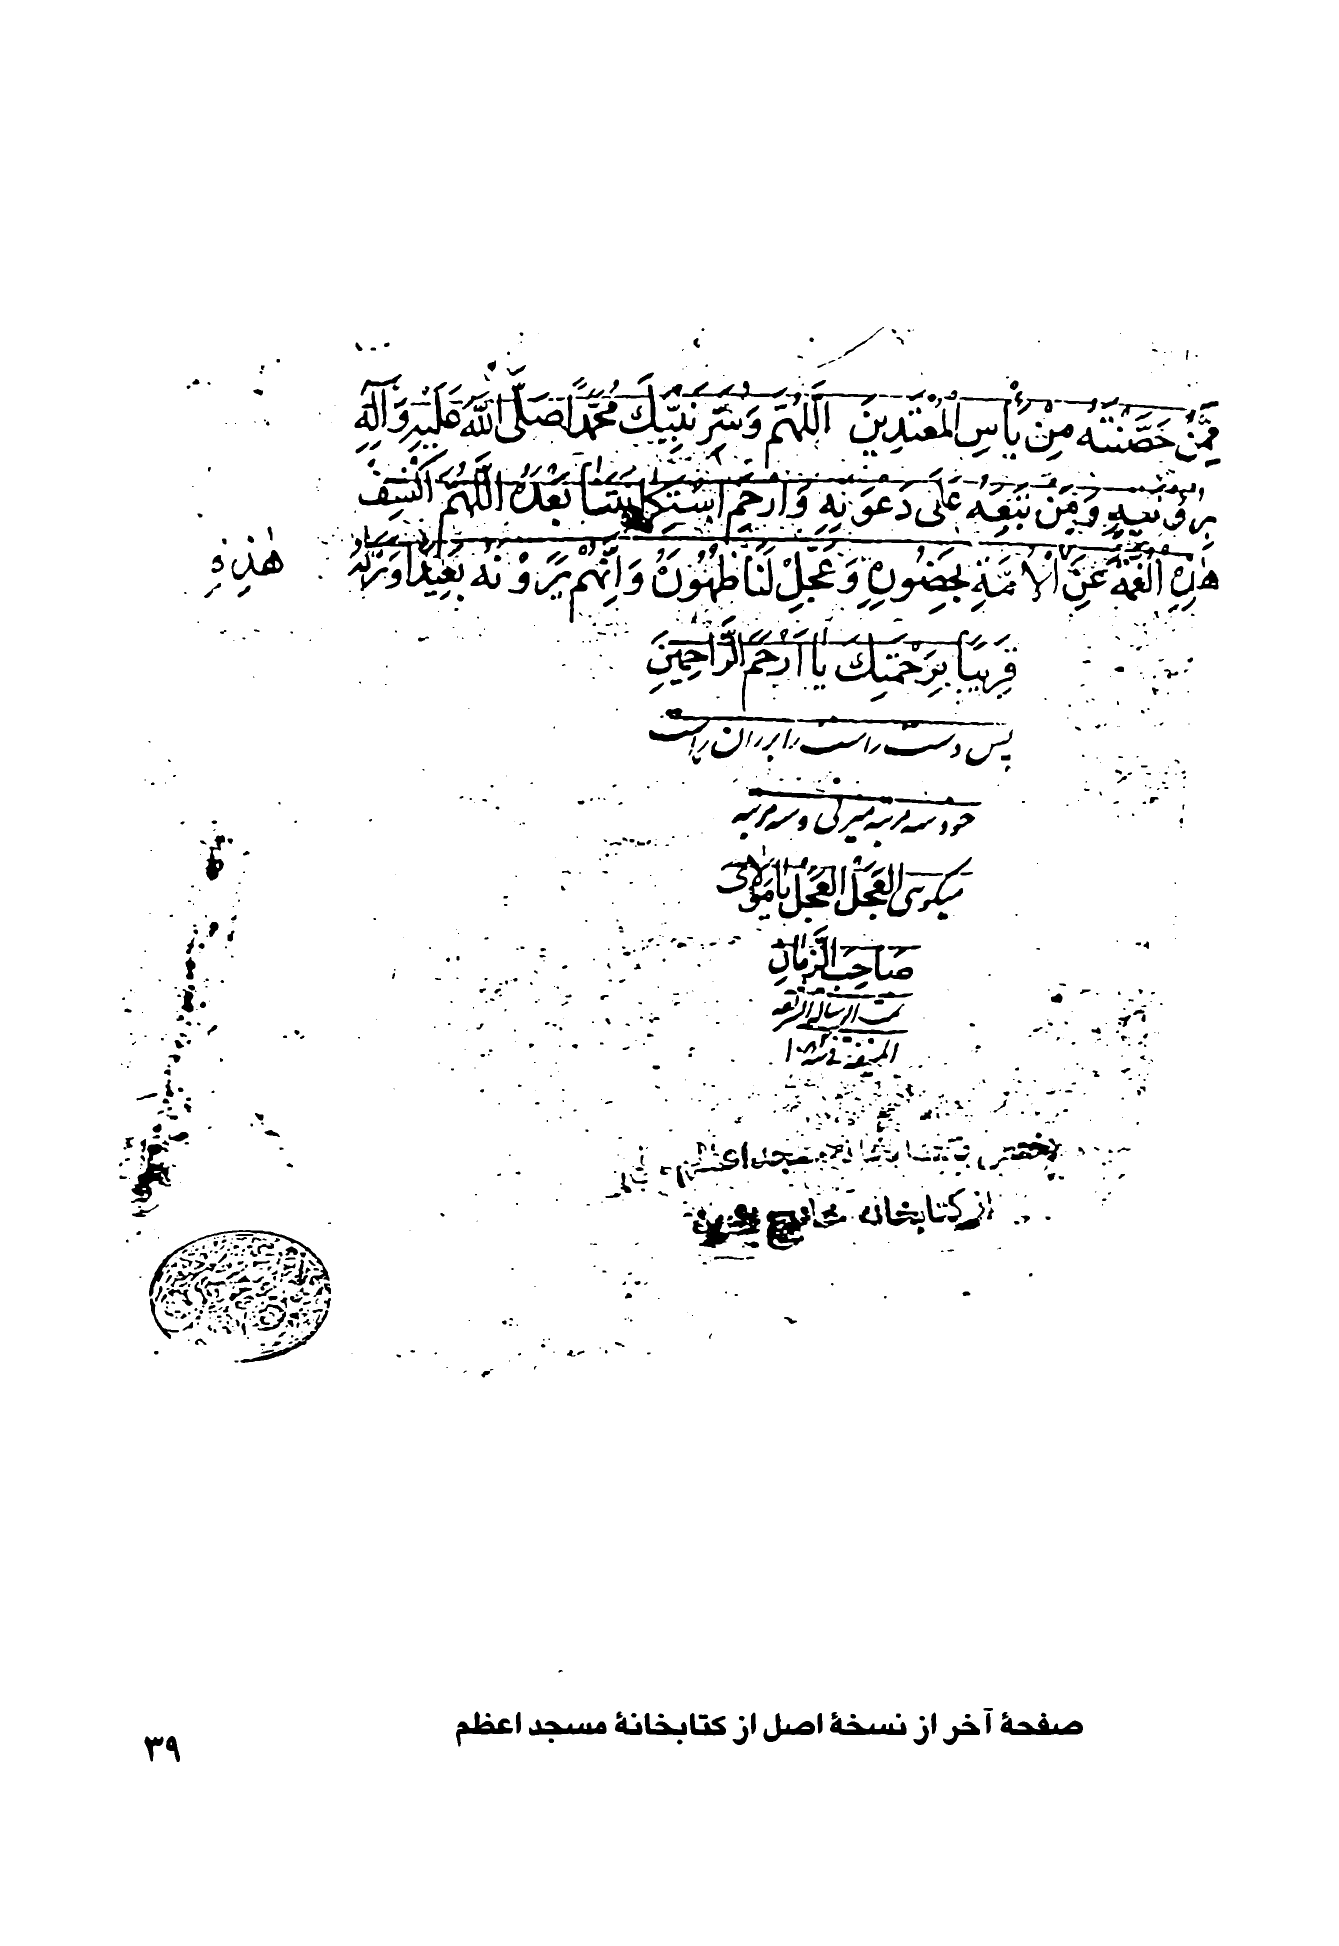 مِمَّنْ حَصَّنْتَهُ مِنْ بَأْسِ الْمُعْتَدِينَ اَللّٰهُمَّ وَسُرَّ نَبِيَّكَ مُحَمَّدًا صَلَّى اللّٰهُ عَلَيْهِ وَآلِهِ
بِرُؤْيَتِهِ وَمَنْ تَبِعَهُ عَلَىٰ دَعْوَتِهِ وَارْحَمِ اسْتِكَانَتَنَا بَعْدَهُ اَللّٰهُمَّ اكْشِفْ
هٰذِهِ الْغُمَّةَ عَنِ الْاُمَّةِ بِحُضُورِهِ وَعَجِّلْ لَنَا ظُهُورَهُ وَاِنَّهُمْ يَرَوْنَهُ بَعِيدًا وَنَرَاهُ
هٰذِهِ
قَرِيبًا بِرَحْمَتِكَ يَا اَرْحَمَ الرَّاحِمِينَ
پس دست راست را بر ران راست
خود سه مرتبه میزنی و سه مرتبه
میگوئی اَلْعَجَلْ اَلْعَجَلْ يَا مَوْلَاىَ
صَاحِبَ الزَّمَانِ
تمت الرسالة الشریفه
از کتابخانه
صفحهٔ آخر از نسخهٔ اصل از کتابخانهٔ مسجد اعظم
۳۹